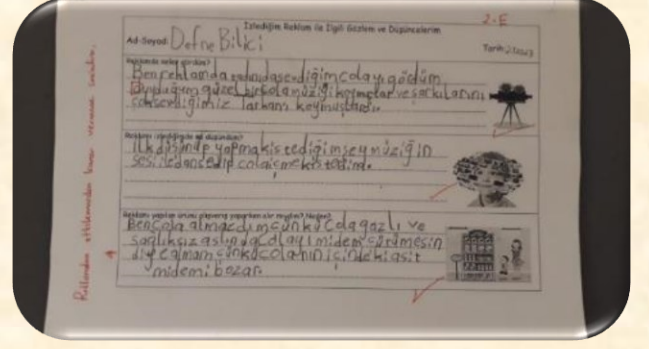 2-E
İzlediğim Reklam ile İlgili Gözlem ve Düşüncelerim
Ad-Soyad: Defne Bilici
Tarih:
Reklamda neler gördüm?
Ben reklamda sevdiğim colayı gödüm
duyduğum güzel bir cola müziği keymuşlar ve şarkılarını
cok sevdiğimiz Tarkanı keymuşlardı.
Reklamı izlediğimde ne düşündüm?
İlk düşünüp yapmak istediğim şey müziğin
sesi ile dans edip cola içmek istedim.
Reklamı yapılan ürünü alışveriş yaparken alır mıydım? Neden?
Ben cola almazdım çünkü cola gazlı ve
sağlıksız aslında colayı midem çürümesin
diye almam çünkü colanın içindeki asit
midemi bozar.
Reklamdan etkilenmeden karar vermen